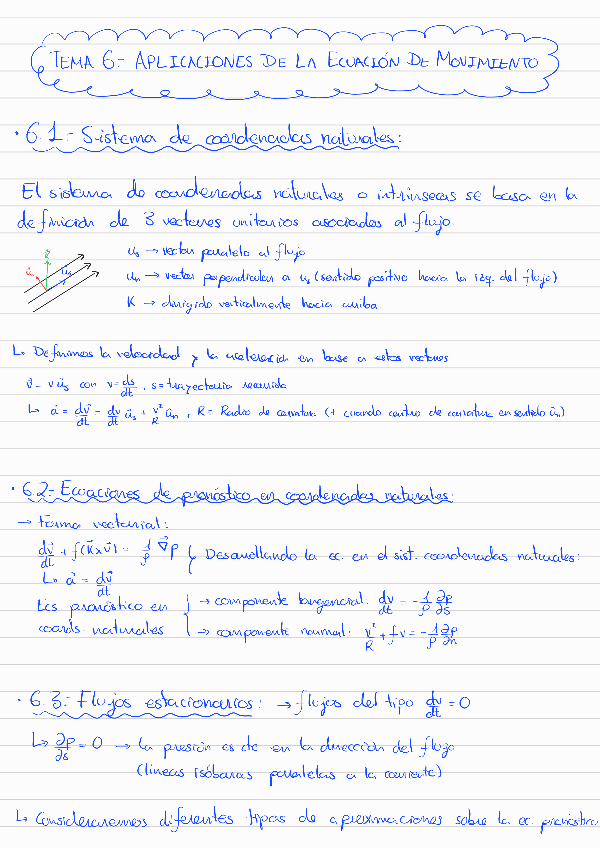 TEMA 6.- APLICACIONES DE LA ECUACIÓN DE MOVIMIENTO
· 6.1.- Sistema de coordenadas naturales:
El sistema de coordenadas naturales o intrínsecas se basa en la
definición de 3 vectores unitarios asociados al flujo
u_s → vector paralelo al flujo
u_n → vector perpendicular a u_s (sentido positivo hacia la izq. del flujo)
K → dirigido verticalmente hacia arriba
L> Definimos la velocidad y la aceleración en base a estos vectores
v⃗ = v u⃗_s con v = ds/dt, s = trayectoria recorrida
L> a⃗ = dv⃗/dt = dv/dt u⃗_s + v²/R u⃗_n, R = Radio de curvatura (+ cuando centro de curvatura en sentido u⃗_n)
· 6.2.- Ecuaciones de pronóstico en coordenadas naturales:
→ Forma vectorial:
dv⃗/dt + f(k⃗ x v⃗) = 1/ρ ∇⃗P } Desarrollando la ec. en el sist. coordenadas naturales:
L> a⃗ = dv⃗/dt
Ecs pronóstico en coords naturales { → componente tangencial: dv/dt = -1/ρ ∂p/∂s
→ componente normal: v²/R + fv = -1/ρ ∂p/∂n
· 6.3.- Flujos estacionarios: → flujos del tipo dv/dt = 0
L> ∂p/∂s = 0 → la presión es cte en la dirección del flujo
(líneas isóbaras paralelas a la corriente)
L> Consideraremos diferentes tipos de aproximaciones sobre la ec. pronóstico